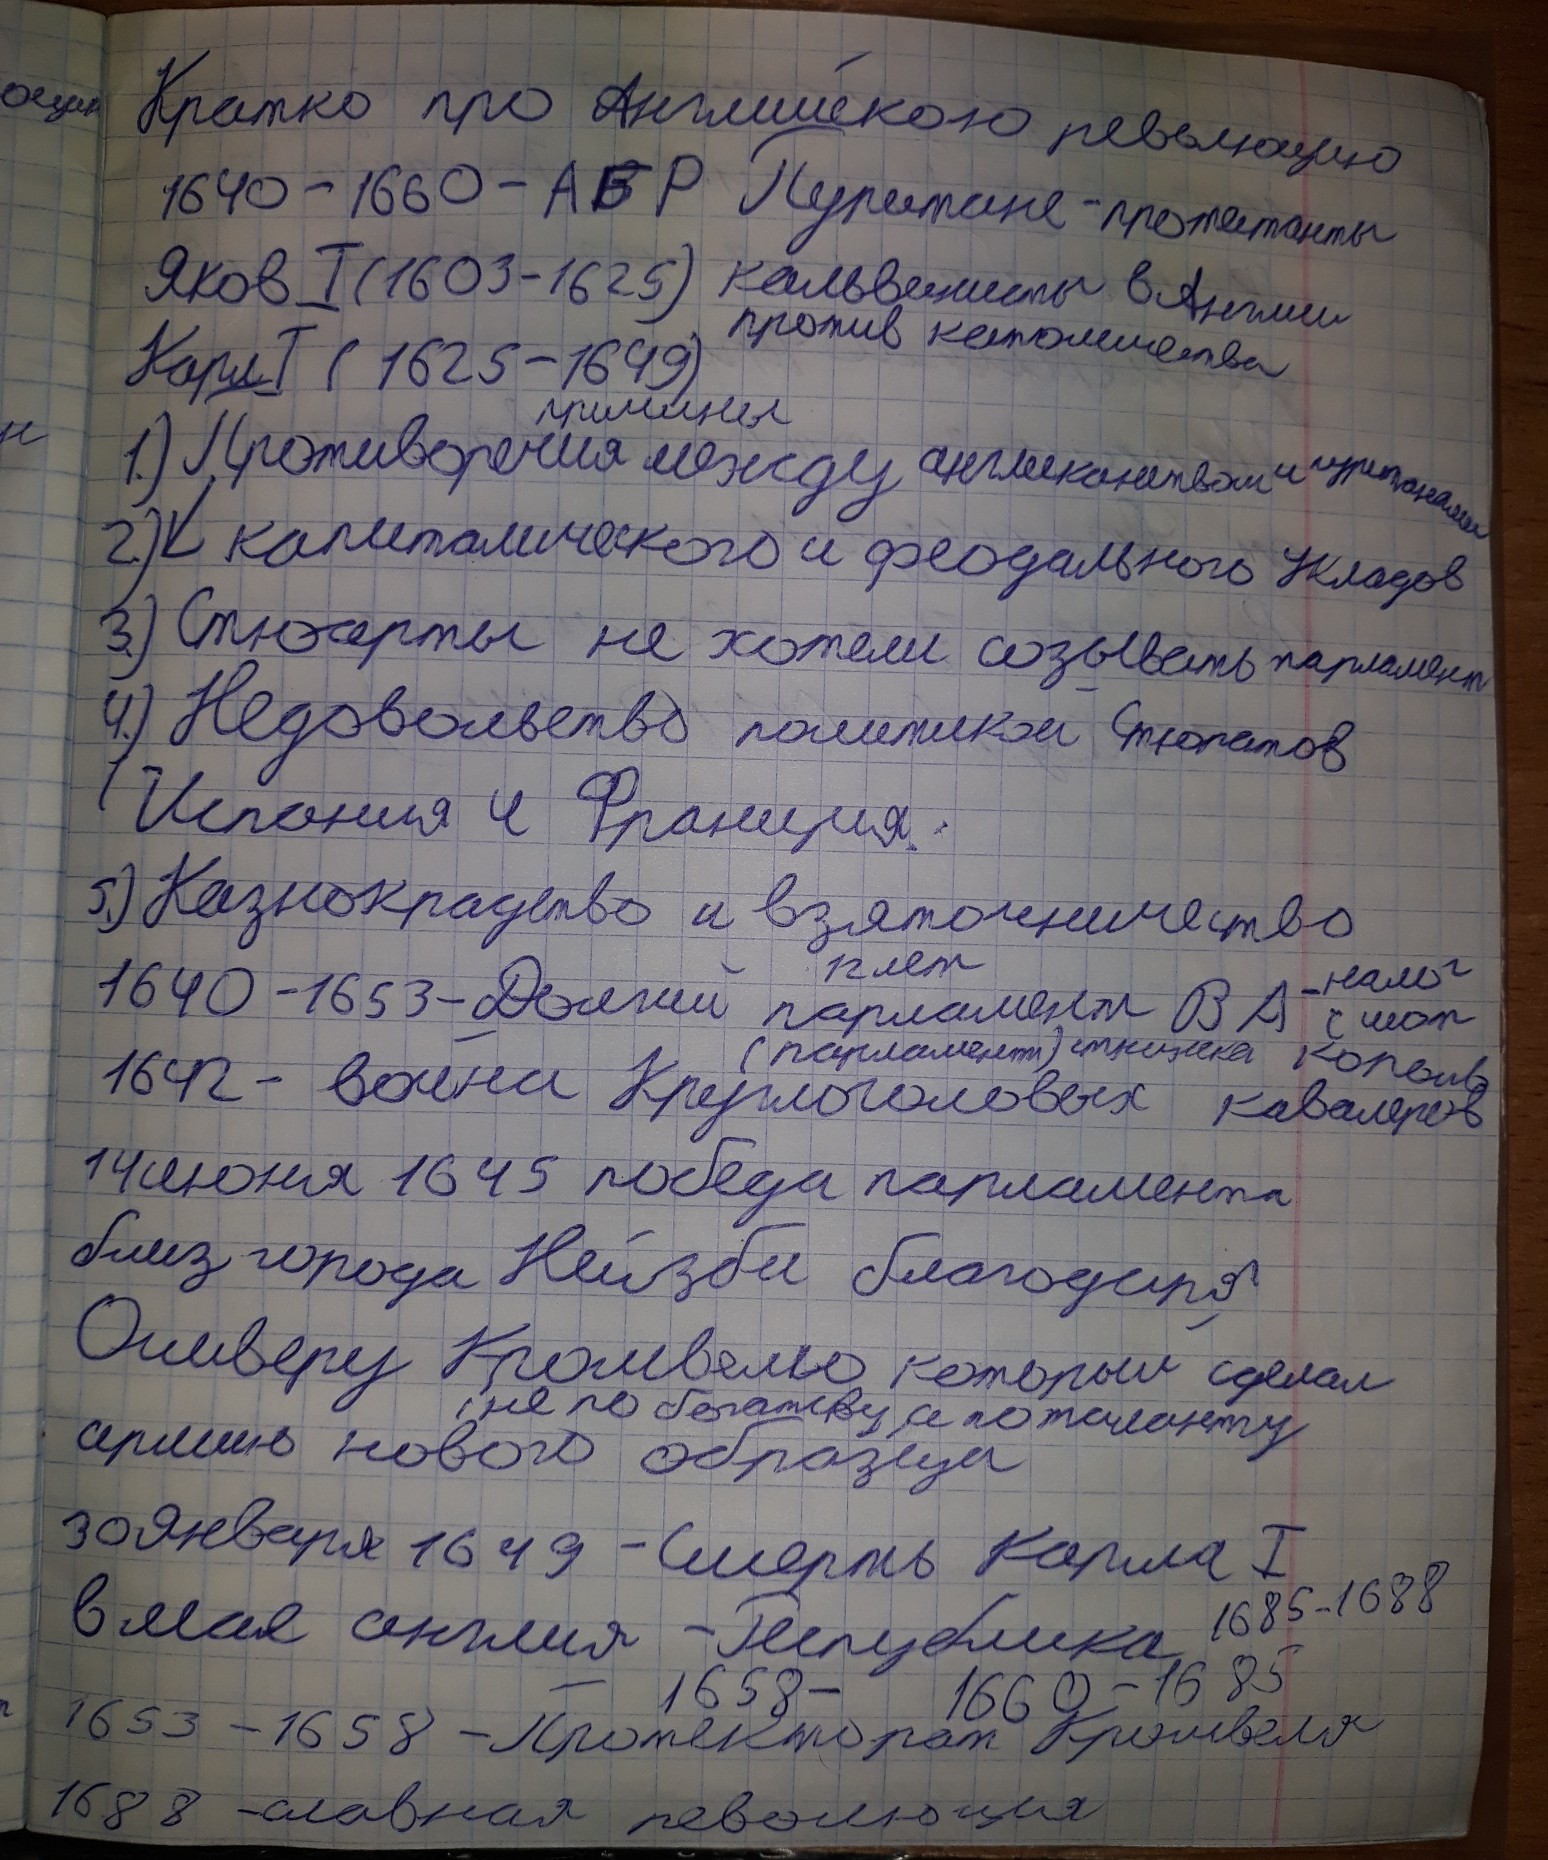 Кратко про Английскою революцию
1640-1660-АБР Пуритане-протестанты
Яков I (1603-1625) кальвенисты в Англии
против католичества
Карл I (1625-1649)
причины
1.) Противоречия между англиканством и пуританами
2.) капиталического и феодального укладов
3.) Стюарты не хотели созывать парламент
4.) Недовольство политикой Стюратов
(Испания и Франция.
5.) Казнокрадство и взяточничество
12 лет налог
1640-1653-Долгий парламент ВА
(парламент) стрижка король
1642- война Круглоголовых кавалеров
14 июня 1645 победа парламента
близ города Нейзби благодаря
Оливеру Кромвелю который сделал
(не по богатсву, а по таланту
армию нового образца
30 января 1649 - Смерть Карла I
в мае англия - Республика 1685-1688
1658- 1660-1685
1653-1658-Протекторат Кромвеля
1688 -славная революция